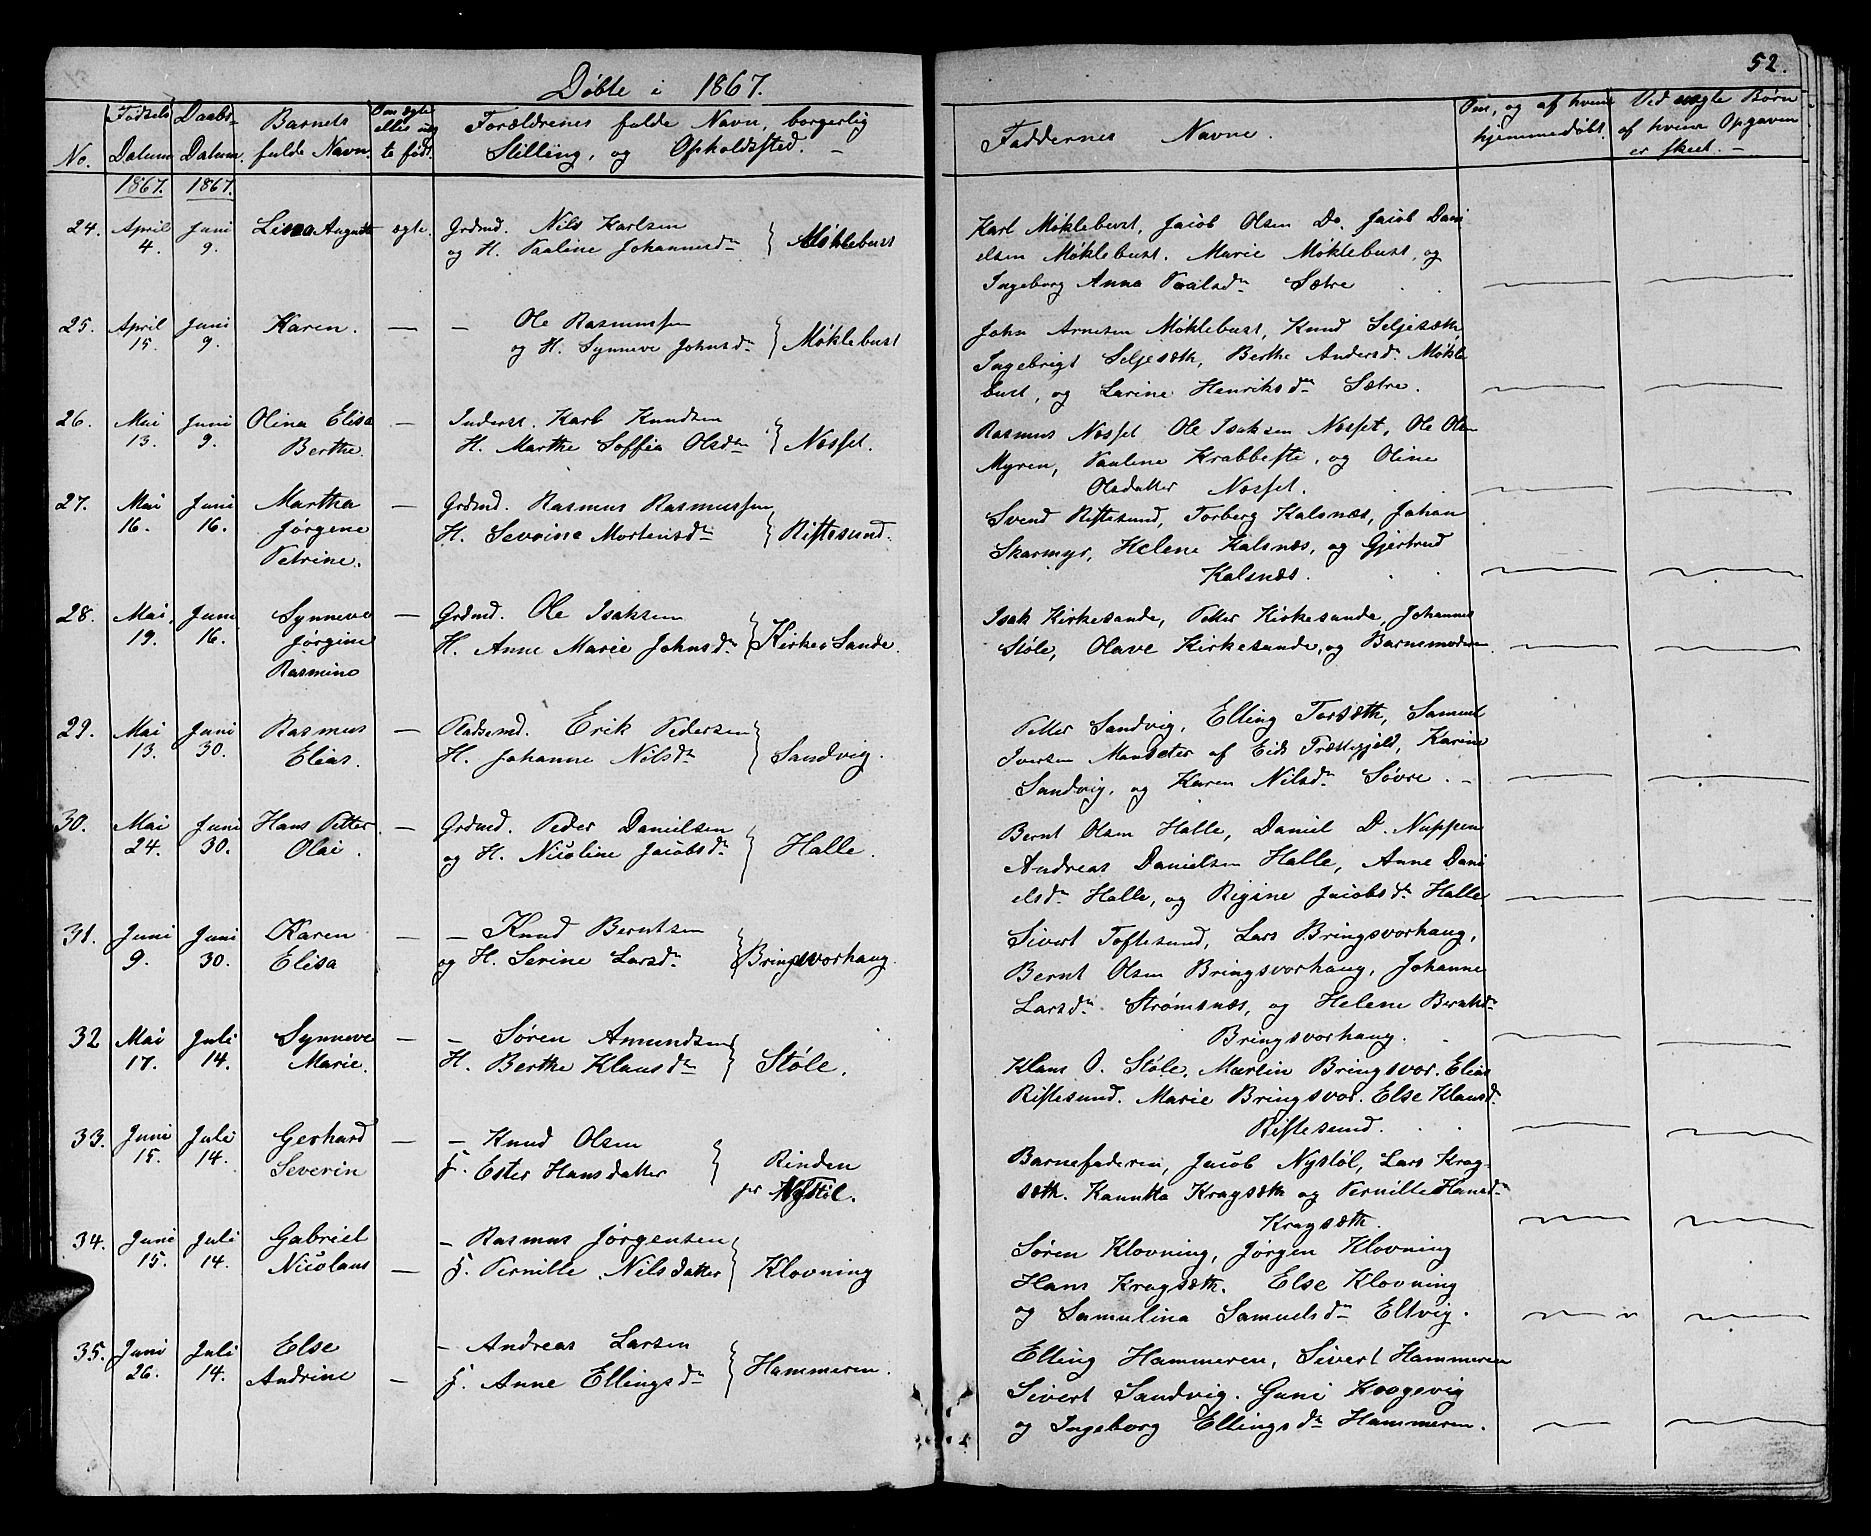 52.
Døbte i 1867.
No.
Fødsels Datum
Daabs- Datum.
Barnets fulde Navn.
Om ægte eller uægte født.
Forældrenes fulde Navn, borgerlig Stilling, og Opholdssted. -
Faddernes Navne.
Om, og af hvem hjemmedøbt.
Ved uægte Børn af hvem Opgaven er skeet. -
1867. 1867.
24. April 4. Juni 9. Augusta ægte. Grdmd. Nils Karlsen
og H. Pauline Johannesdr. } Møklebust
Karl Møklebust, Jacob Olsen Do. Jacob Dani
elsen Møklebust. Marie Møklebust, og
Ingeborg Anna Paalsdr. Sætre
25. April 15. Juni 9. Karen. — — Ole Rasmussen
og H. Synneve Johnsdr. } Møklebust
John Arnesen Møklebust, Knud Seljesæth,
Ingebrigt Seljesæth, Berthe Andersdr. Møkle
bust, og Larine Henriksdr. Sætre.
26. Mai 13. Juni 9. Olina Elisa — Inderst. Karl Knudsen
Berthe. H. Marthe Soffia Olsdr. } Nosset.
Rasmus Nosset Ole Isaksen Nosset, Ole Olsen
Myren, Pauline Krabbestie, og Oline
Olsdatter Nosset.
27. Mai 16. Juni 16. Martha — Grdmd. Rasmus Rasmussen
Jørgene H. Severine Mortensdr. } Riftesund.
Petrine.
Svend Riftesund, Torberg Kalsnæs, Johan
Skarmyr, Helene Kalsnæs, og Gjertrud
Kalsnæs.
28. Mai, 19. Juni 16. Synneve — Grdmd. Ole Isaksen
Jørgine H. Anne Marie Johnsdr. } Kirke Sande.
Rasmine
Isak Kirkesande, Petter Kirkesande, Johannes
Støle, Olave Kirkesande, og Barnemoderen.
29. Mai 13. Juni 30. Rasmus — Pladsmd. Erik Pedersen
Elias. H. Johanne Nilsdr. } Sandvig.
Petter Sandvig, Elling Torsæth, Samuel
Iversen Mandseter af Eids Præstegjeld, Karine
Sandvig, og Karen Nilsdr. Søvre. -
30. Mai 24. Juni 30. Hans Petter — Grdmd. Peder Danielsen
Olai. og H. Nicoline Jacobsdr. } Halle.
Bernt Olsen Halle, Daniel D. Nuppen
Andreas Danielsen Halle, Anne Dani
elsdr. Halle, og Rigine Jacobsdr. Halle.
31. Juni 9. Juni 30. Karen — — Knud Berntsen
Elisa og H. Serine Larsdr. } Bringsvorhaug.
Sivert Toftesund, Lars Bringsvorhaug,
Bernt Olsen Bringsvorhaug, Johanne
Larsdr. Strømsnæs, og Helene Berntsdr.
Bringsvorhaug.
32 Mai 17. Juli 14. Synneve — — Søren Amundsen
Marie. H. Berthe Klausdr. } Støle.
Klaus O. Støle. Martin Bringsvor. Elias
Riftesund. Marie Bringsvor. Else Klausdr.
Riftesund.
33. Juni 15. Juli 14. Gerhard — — Knud Olsen
Severin H. Ester Hansdatter } Rinden
pr Nystøl.
Barnefaderen, Jacob Nystøl, Lars Krag-
sæth. Kanutta Kragsæth og Pernille Hansdr.
Kragsæth.
34. Juni 15. Juli 14. Gabriel — Rasmus Jørgensen
Nicolaus — H. Pernille Nilsdatter } Klovning
Søren Klovning, Jørgen Klovning
Hans Kragsæth. Else Klovning
og Samulina Samuelsdr. Eltvig.
35. Juni 26. Juli 14. Else — Andreas Larsen
Andrine — H. Anne Ellingsdr. } Hammeren.
Elling Hammeren, Sivert Hammeren
Sivert Sandvig. Guni
og Ingeborg Ellingsdr. Hammeren.